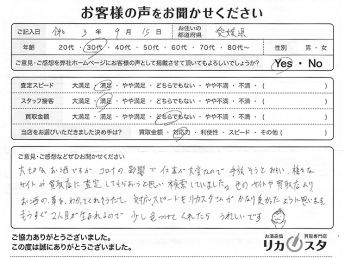 お客様の声をお聞かせください
ご記入日 令和 3 年 9 月 15 日 お住いの都道府県 愛媛県
年齢 20代・30代・40代・50代・60代・70代・80代〜 性別 男・女
ご意見・ご感想を弊社ホームページにお客様の声として掲載させて頂いてもよろしいでしょうか? Yes・No
査定スピード 大満足・満足・やや満足・どちらでもない・やや不満・不満・( )
スタッフ接客 大満足・満足・やや満足・どちらでもない・やや不満・不満・( )
買取金額 大満足・満足・やや満足・どちらでもない・やや不満・不満・( )
当店をお選びいただきました決め手は? 買取金額・対応力・利便性・スピード・その他( )
ご意見・ご感想などぜひお聞かせください
大切なお酒ですが コロナの影響で仕事が大変なので手放そうと思い、様々な
サイトが買取店に査定してもらおうと思い検索していました。他のサイトや買取店より
お酒の事を わかってくれそうで、対応スピードもリカスタさんが かなり早めだったように思います
もうすぐ2人目が生まれるので 少し見つけてくれたら うれしいです
ご協力ありがとうございました。
この度は誠にありがとうございました。
お酒高価 買取専門店
リカスタ